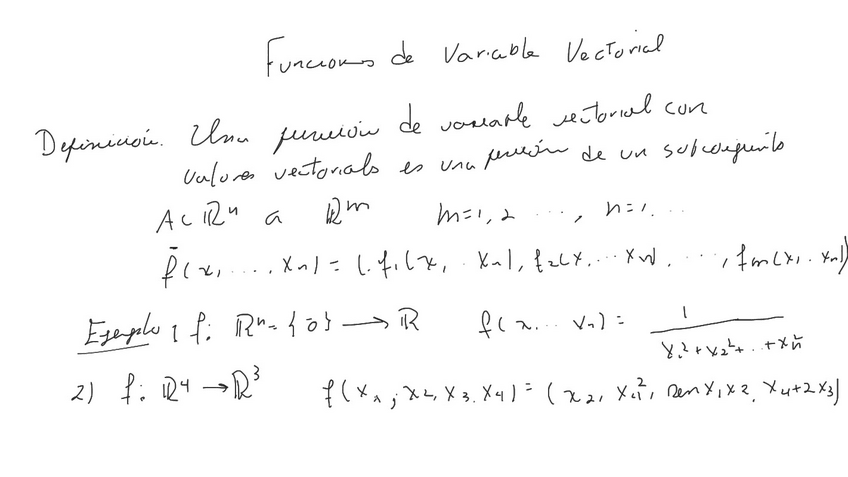 Funciones de Variable Vectorial
Definición. Una función de variable vectorial con
valores vectorials es una función de un subconjunto
A ⊂ ℝⁿ a ℝᵐ m=1,2 ..., n=1...
f̄(x₁,...,xₙ) = (f₁(x₁..xₙ), f₂(x₁...xₙ), ..., fₘ(x₁..xₙ))
Ejemplo 1 f: ℝⁿ-{ō} → ℝ f(x₁...xₙ) = 1/(x₁²+x₂²+..+xₙ²)
2) f: ℝ⁴ → ℝ³ f(x₁, x₂, x₃, x₄) = (x₂, x₁², sen x₁x₂, x₄+2x₃)